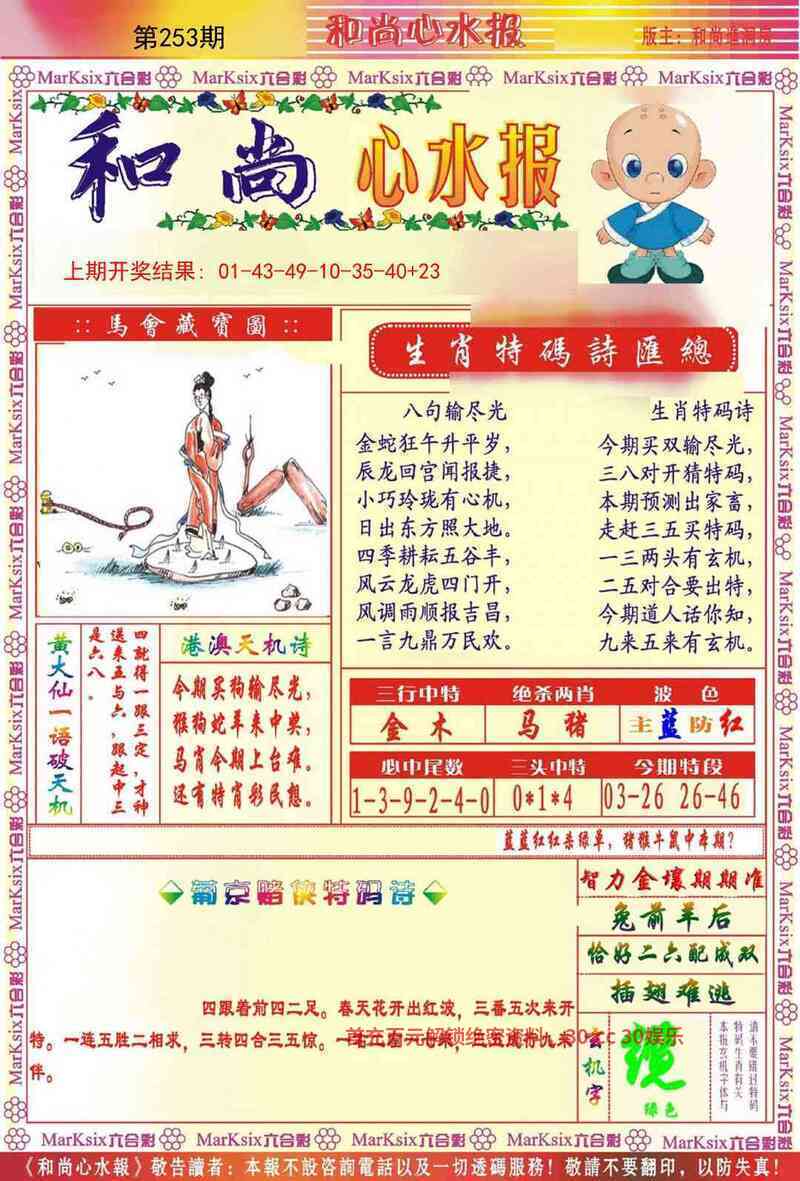 第253期
和尚心水报
MarKsix六合彩 MarKsix六合彩 MarKsix六合彩 MarKsix六合彩 MarKsix六合彩
和尚心水报
上期开奖结果：01-43-49-10-35-40+23
:: 馬會藏寳圖 ::
生肖特碼詩匯總
八句输尽光
金蛇狂午升平岁，
辰龙回宫闻报捷，
小巧玲珑有心机，
日出东方照大地。
四季耕耘五谷丰，
风云龙虎四门开，
风调雨顺报吉昌，
一言九鼎万民欢。
生肖特码诗
今期买双输尽光，
三八对开猜特码，
本期预测出家畜，
走赶三五买特码，
一三两头有玄机，
二五对合要出特，
今期道人话你知，
九来五来有玄机。
黄大仙一语破天机
四就得一跟三定，才神
送来五与六，跟赵中三
是六八。
港澳天机诗
今期买狗输尽光，
猴狗蛇羊来中奖，
马肖今期上台难。
还有特肖彩民想。
三行中特 绝杀两肖 波色
金木 马猪 主蓝防红
必中尾数 三头中特 今期特段
1-3-9-2-4-0 0*1*4 03-26 26-46
蓝蓝红红杀绿单，猪猴牛鼠中本期？
葡京赌侠特码诗
四跟着前四二足。春天花开出红波，三番五次来开
特。一连五胜二相求，三转四合三五惊。
伴。
智力金壤期期准
兔前羊后
恰好二六配成双
插翅难逃
玄机字
绿色
请不要错过特码
特码生肖有关
本报玄机字体与
MarKsix六合彩 MarKsix六合彩 MarKsix六合彩 MarKsix六合彩 MarKsix六合彩
《和尚心水報》敬告讀者：本報不設咨詢電話以及一切透碼服務！敬請不要翻印，以防失真！